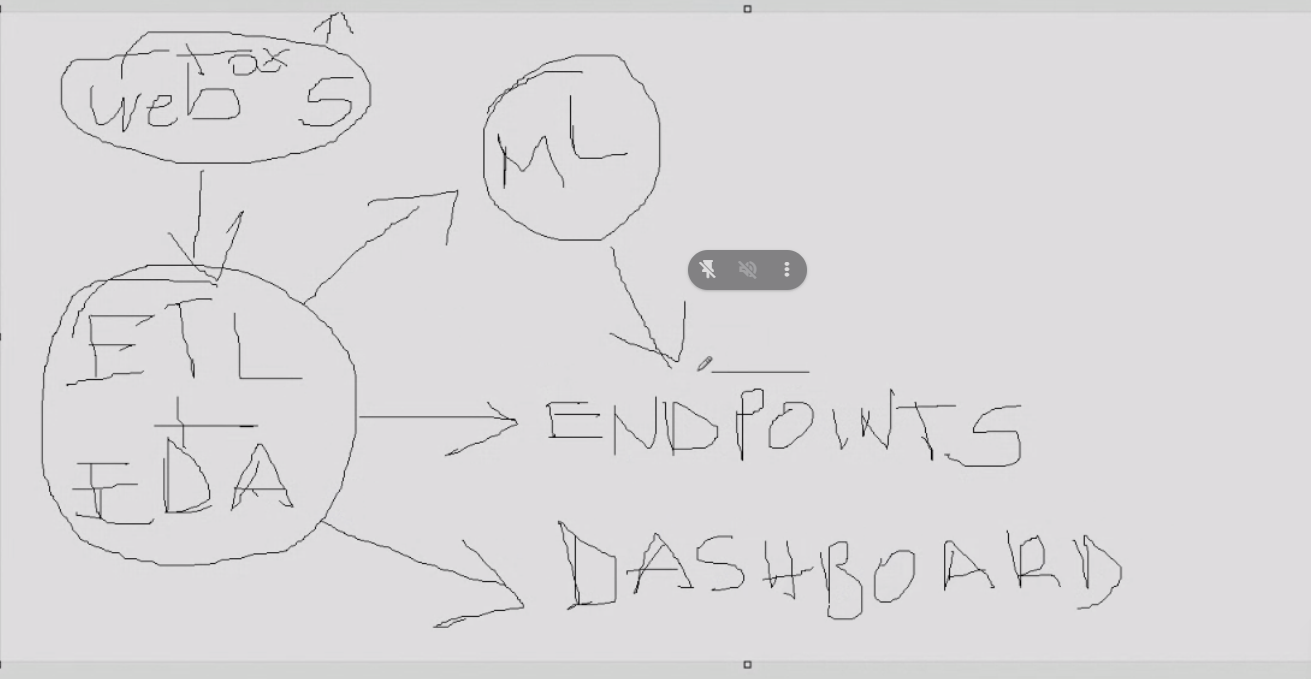 web s
ML
ETL
+
EDA
ENDPOINTS
DASHBOARD